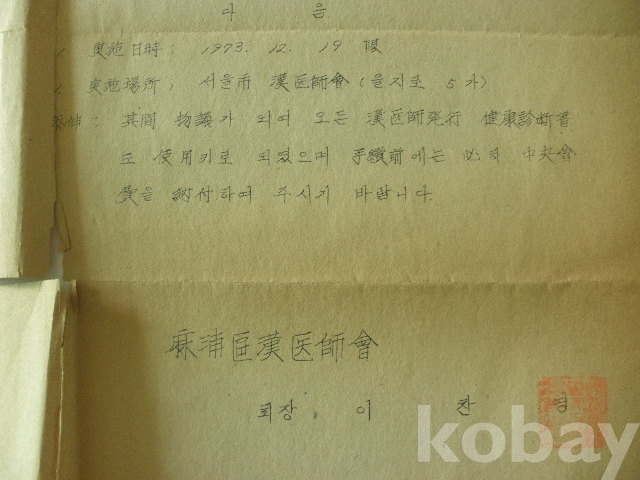 다 음
1. 実施日時; 1973. 12. 19 限
2. 実施場所; 서울市 漢医師會 (을지로 5가)
追伸: 其間 物議가 되여 오든 漢医師発行 健康診断書
도 使用키로 되였으며 手續前에는 必히 中央會
費을 納付하여 주시기 바랍니다.
麻浦區漢医師會
회장. 이 찬 영
kobay